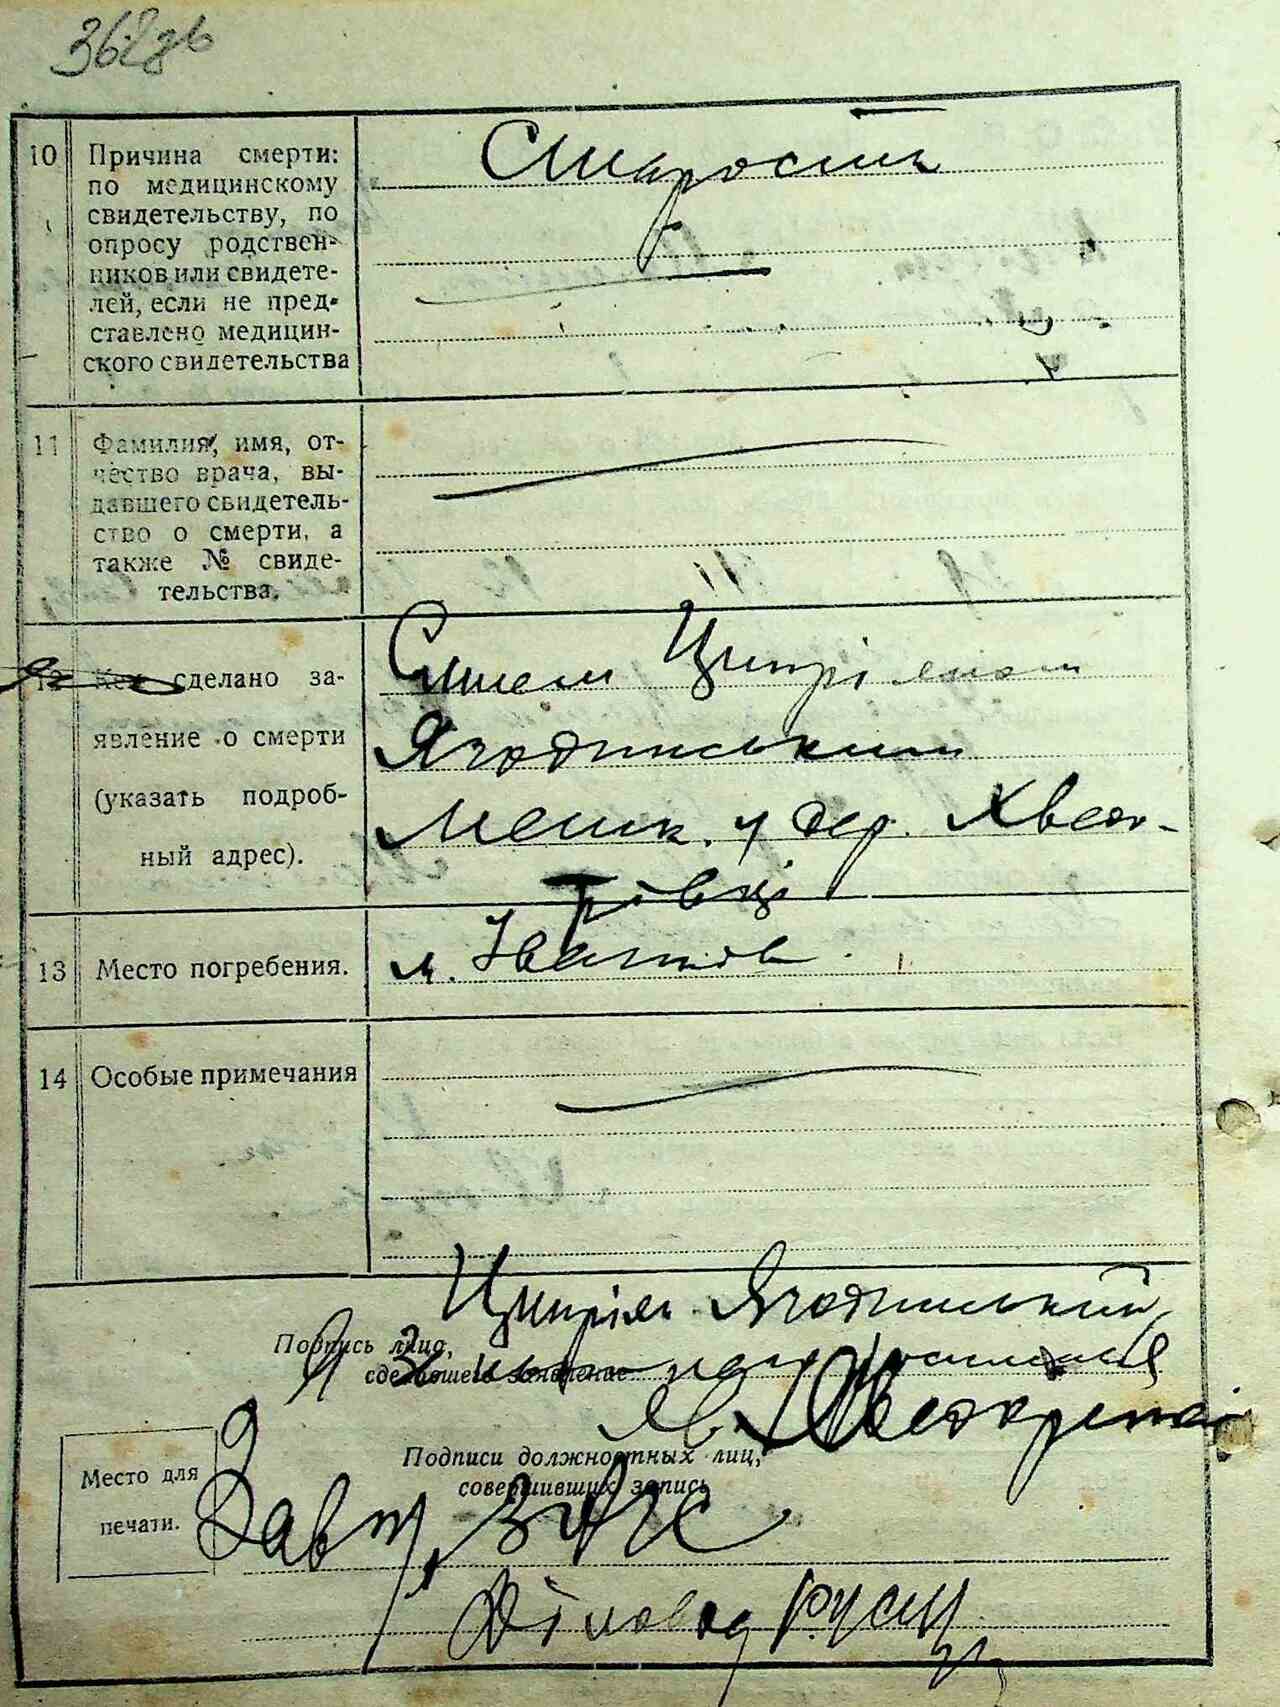 10 Причина смерти:
по медицинскому
свидетельству, по
опросу родствен-
ников или свидете-
лей, если не пред-
ставлено медицин-
ского свидетельства
Старость
11 Фамилия, имя, от-
чество врача, вы-
давшего свидетель-
ство о смерти, а
также № свиде-
тельства.
сделано за-
явление о смерти
(указать подроб-
ный адрес).
Сином Ципріяном
Ягодинським
Мешк. у дер. Хведо-
рівці
13 Место погребения.
м. Іватків.
14 Особые примечания
Ципріян Ягодинський
Подпись лица,
сделавшего заявление
Подписи должностных лиц,
совершивших запись
Место для
печати.
Зав. ЗАГС
Діловод